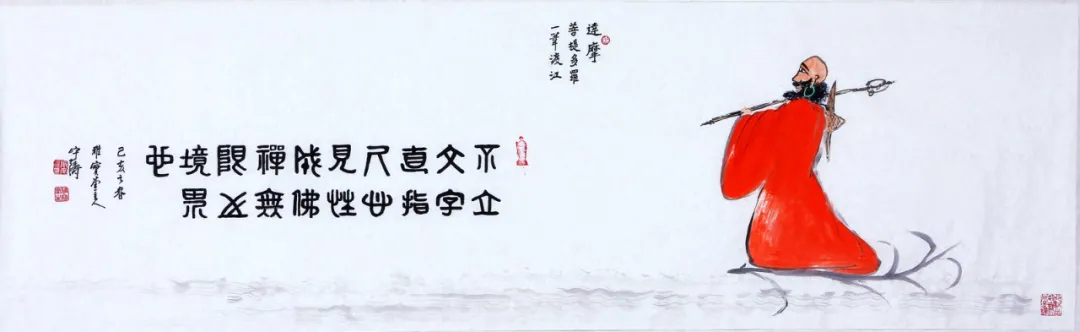 達摩
菩提多羅
一葦渡江
不立
文字
直指
人心
見性
成佛
禪無
限
境界
也
己亥之春
堂主人